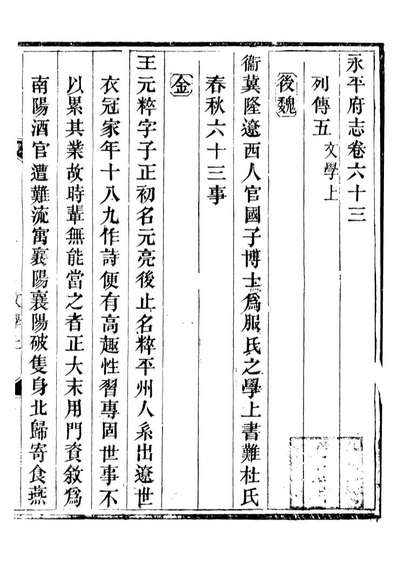 永平府志卷六十三
列傳五 文學上
後魏
衞冀隆遼西人官國子博士爲服氏之學上書難杜氏
春秋六十三事
金
王元粹字子正初名元亮後止名粹平州人系出遼世
衣冠家年十八九作詩便有高趣性習專固世事不
以累其業故時輩無能當之者正大末用門資敘爲
南陽酒官遭難流寓襄陽襄陽破隻身北歸寄食燕